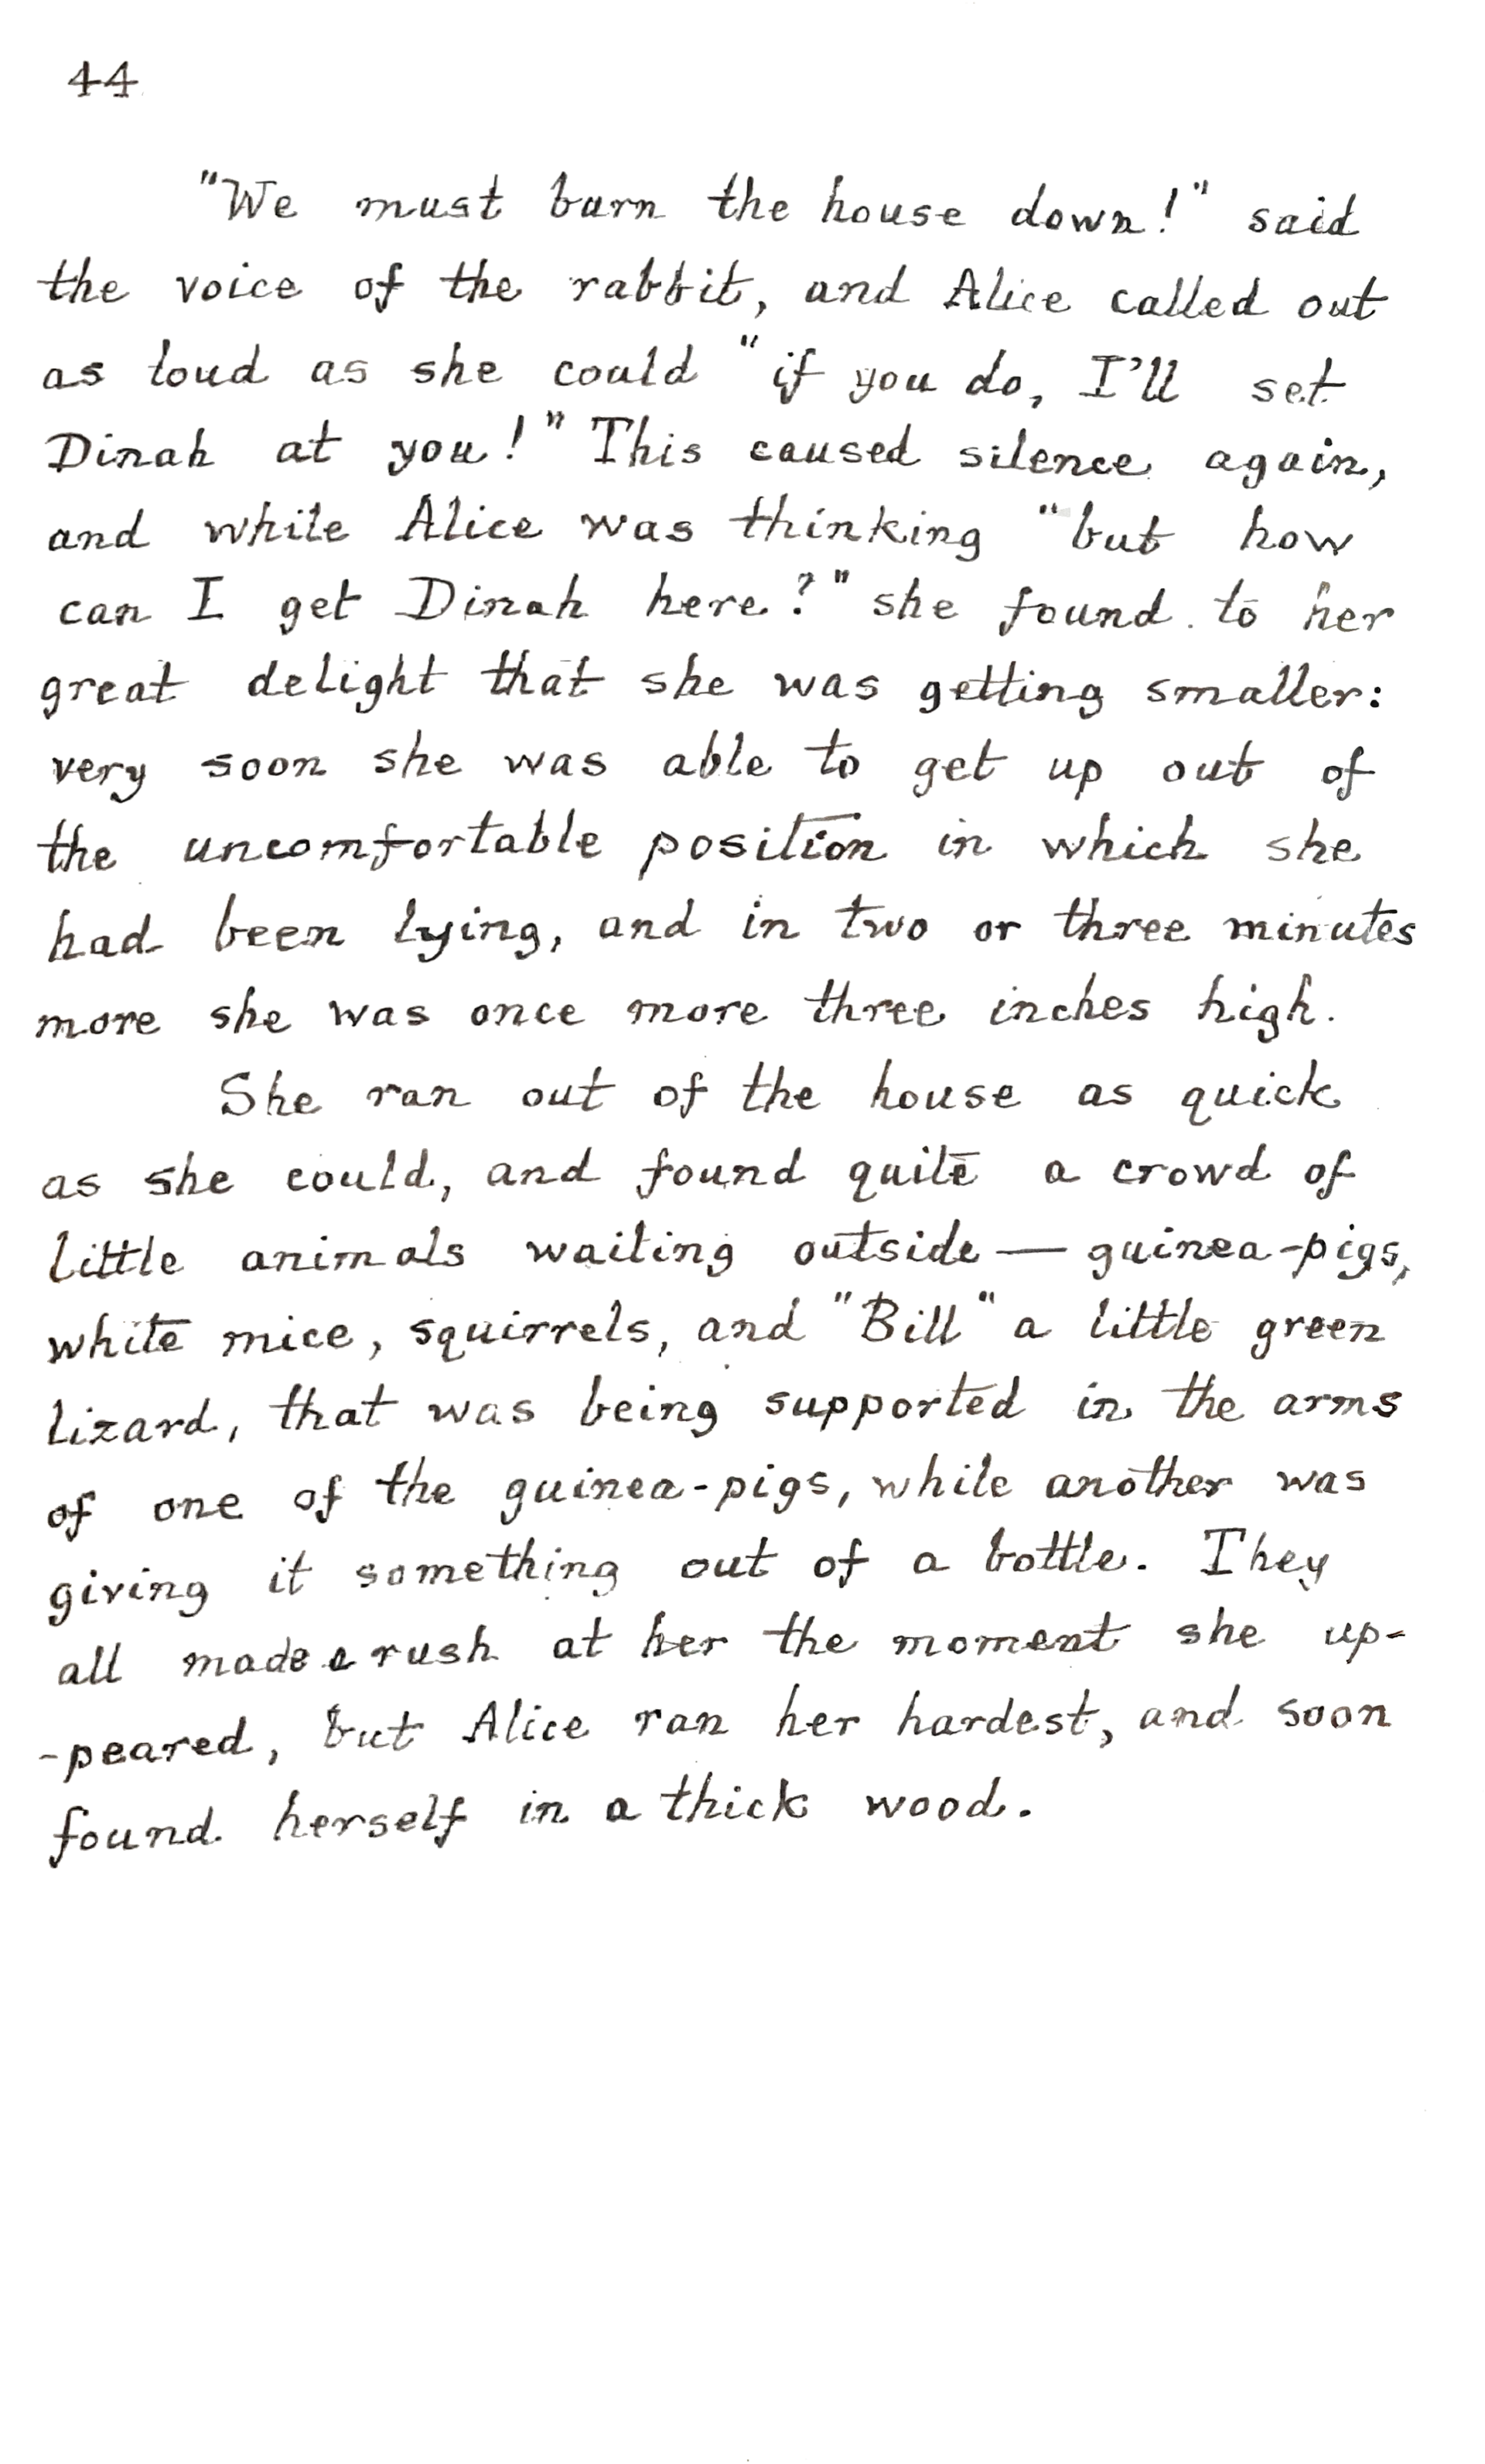 44
"We must burn the house down!" said
the voice of the rabbit, and Alice called out
as loud as she could "if you do, I'll set
Dinah at you!" This caused silence again,
and while Alice was thinking "but how
can I get Dinah here?" she found to her
great delight that she was getting smaller:
very soon she was able to get up out of
the uncomfortable position in which she
had been lying, and in two or three minutes
more she was once more three inches high.
She ran out of the house as quick
as she could, and found quite a crowd of
little animals waiting outside — guinea-pigs,
white mice, squirrels, and "Bill" a little green
lizard, that was being supported in the arms
of one of the guinea-pigs, while another was
giving it something out of a bottle. They
all made a rush at her the moment she up-
-peared, but Alice ran her hardest, and soon
found herself in a thick wood.